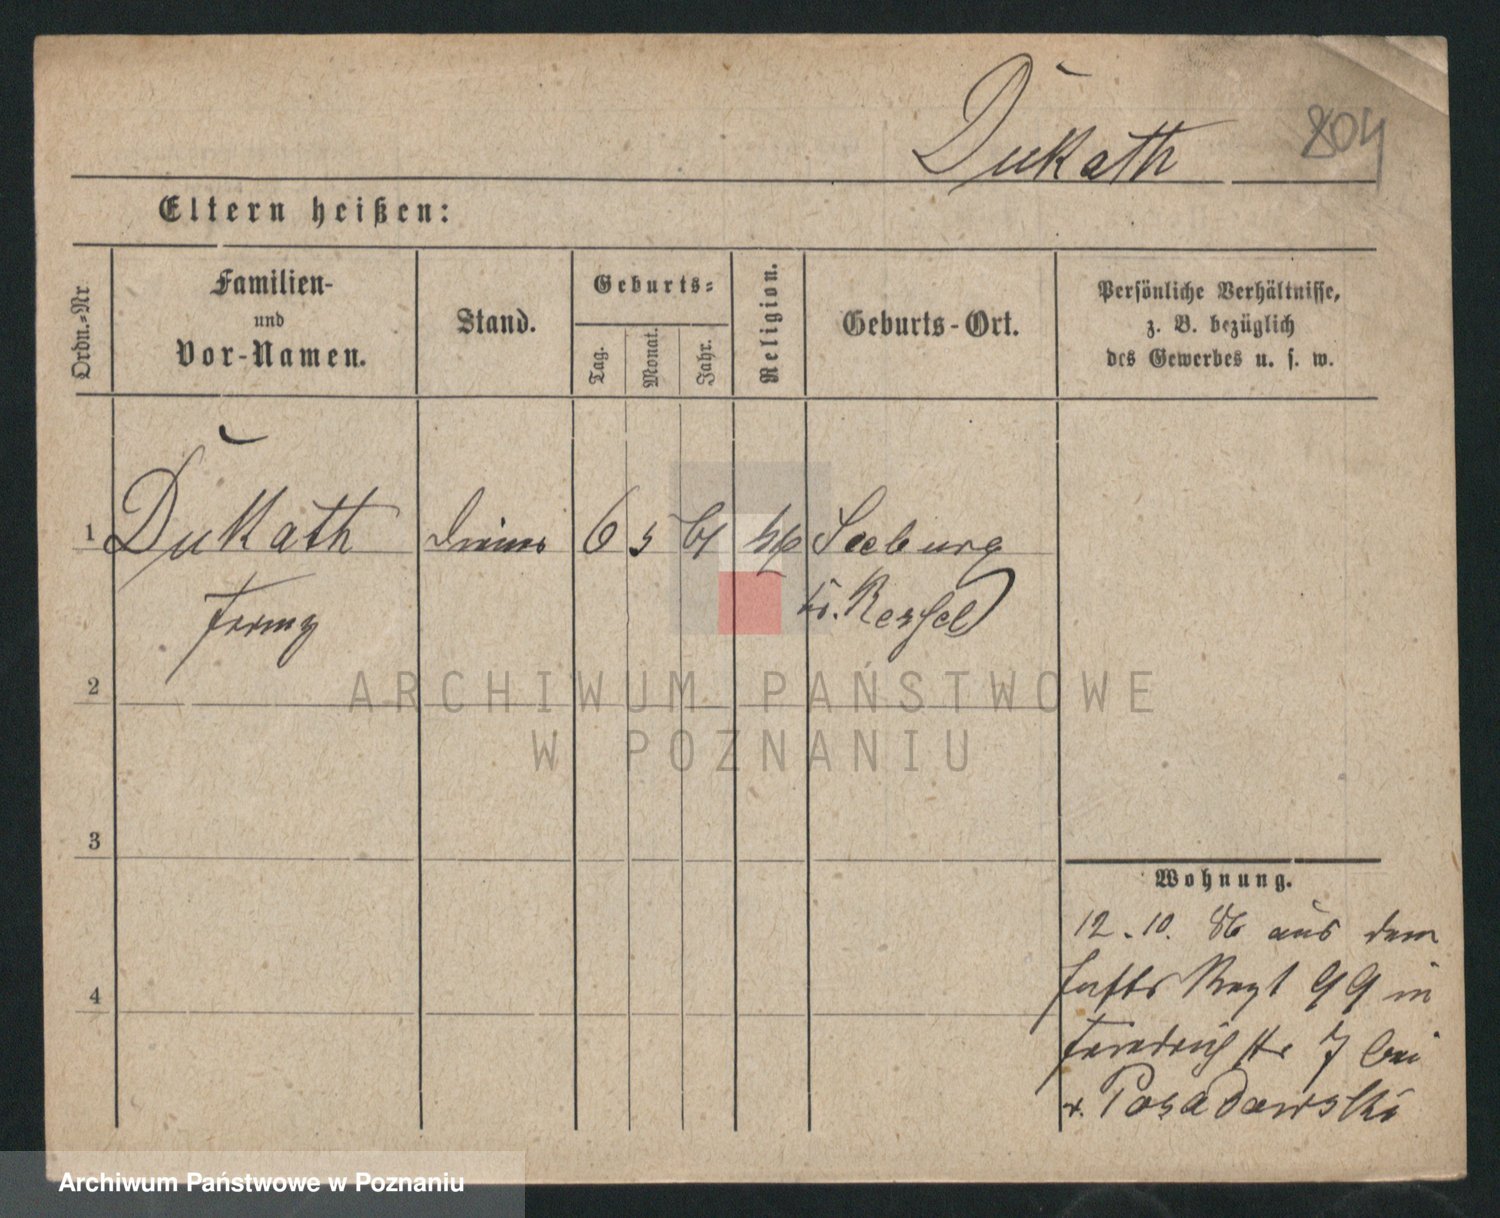 Dukath
804
Eltern heißen:
Ordn.-Nr
Familien-
und
Vor-Namen.
Stand.
Geburts-
Tag.
Monat.
Jahr.
Religion.
Geburts-Ort.
Persönliche Verhältnisse,
z. B. bezüglich
des Gewerbes u. s. w.
1 Dukath Diener 6 5 61 Seeburg
Franz Kr. Ressel
2
3
4
Wohnung.
12. 10. 86 aus dem
Regt 99 in
Friedrichstr 7 bei
v. Posadowski
ARCHIWUM PAŃSTWOWE
W POZNANIU
Archiwum Państwowe w Poznaniu